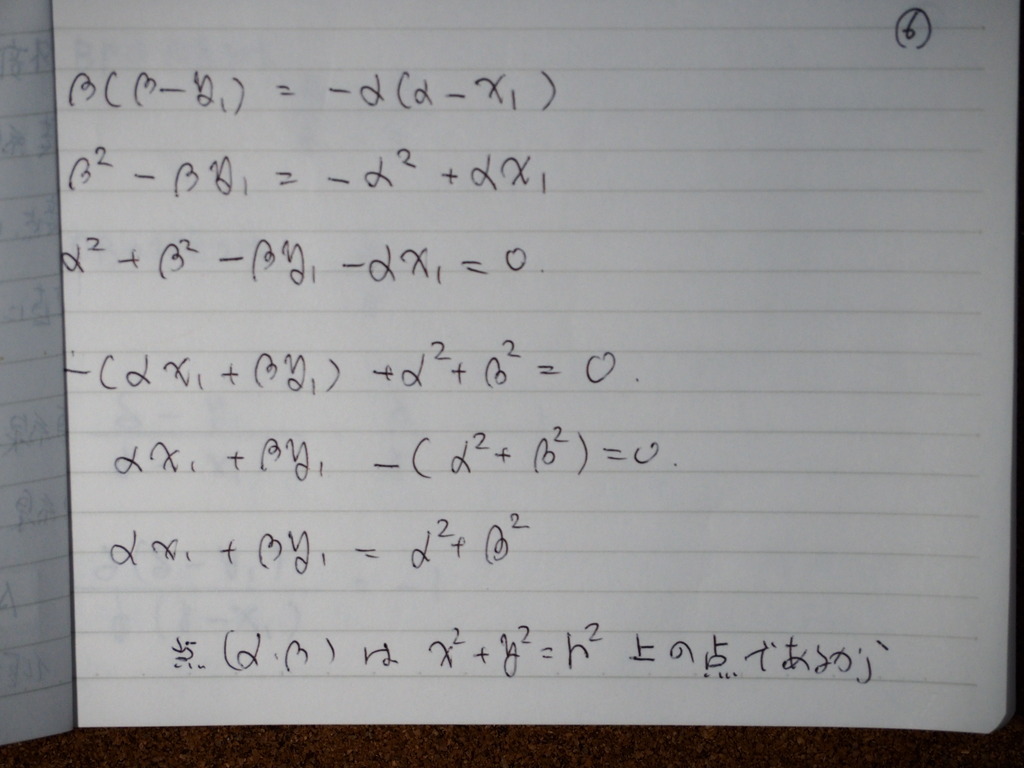 ⑥
β(β-y₁) = -α(α-x₁)
β² - βy₁ = -α² + αx₁
α² + β² - βy₁ - αx₁ = 0.
-(αx₁ + βy₁) + α² + β² = 0.
αx₁ + βy₁ - (α² + β²) = 0.
αx₁ + βy₁ = α² + β²
点(α.β)は x² + y² = r² 上の点であるから